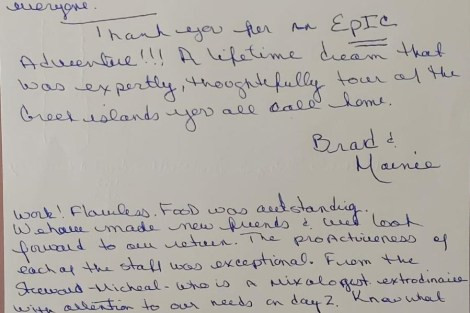 everyone.
Thank you for an EpIC
Adventure!!! A lifetime dream that
was expertly, thoughtfully tour of the
Greek islands you all call home.
Brad &
work! Flawless. FooD was outstanding.
We have made new friends & will look
forward to our return. The proActiveness of
each of the staff was exceptional. From the
Steward - Micheal - who is a mixologist extrodinaire
with attention to our needs on day 2. Know what